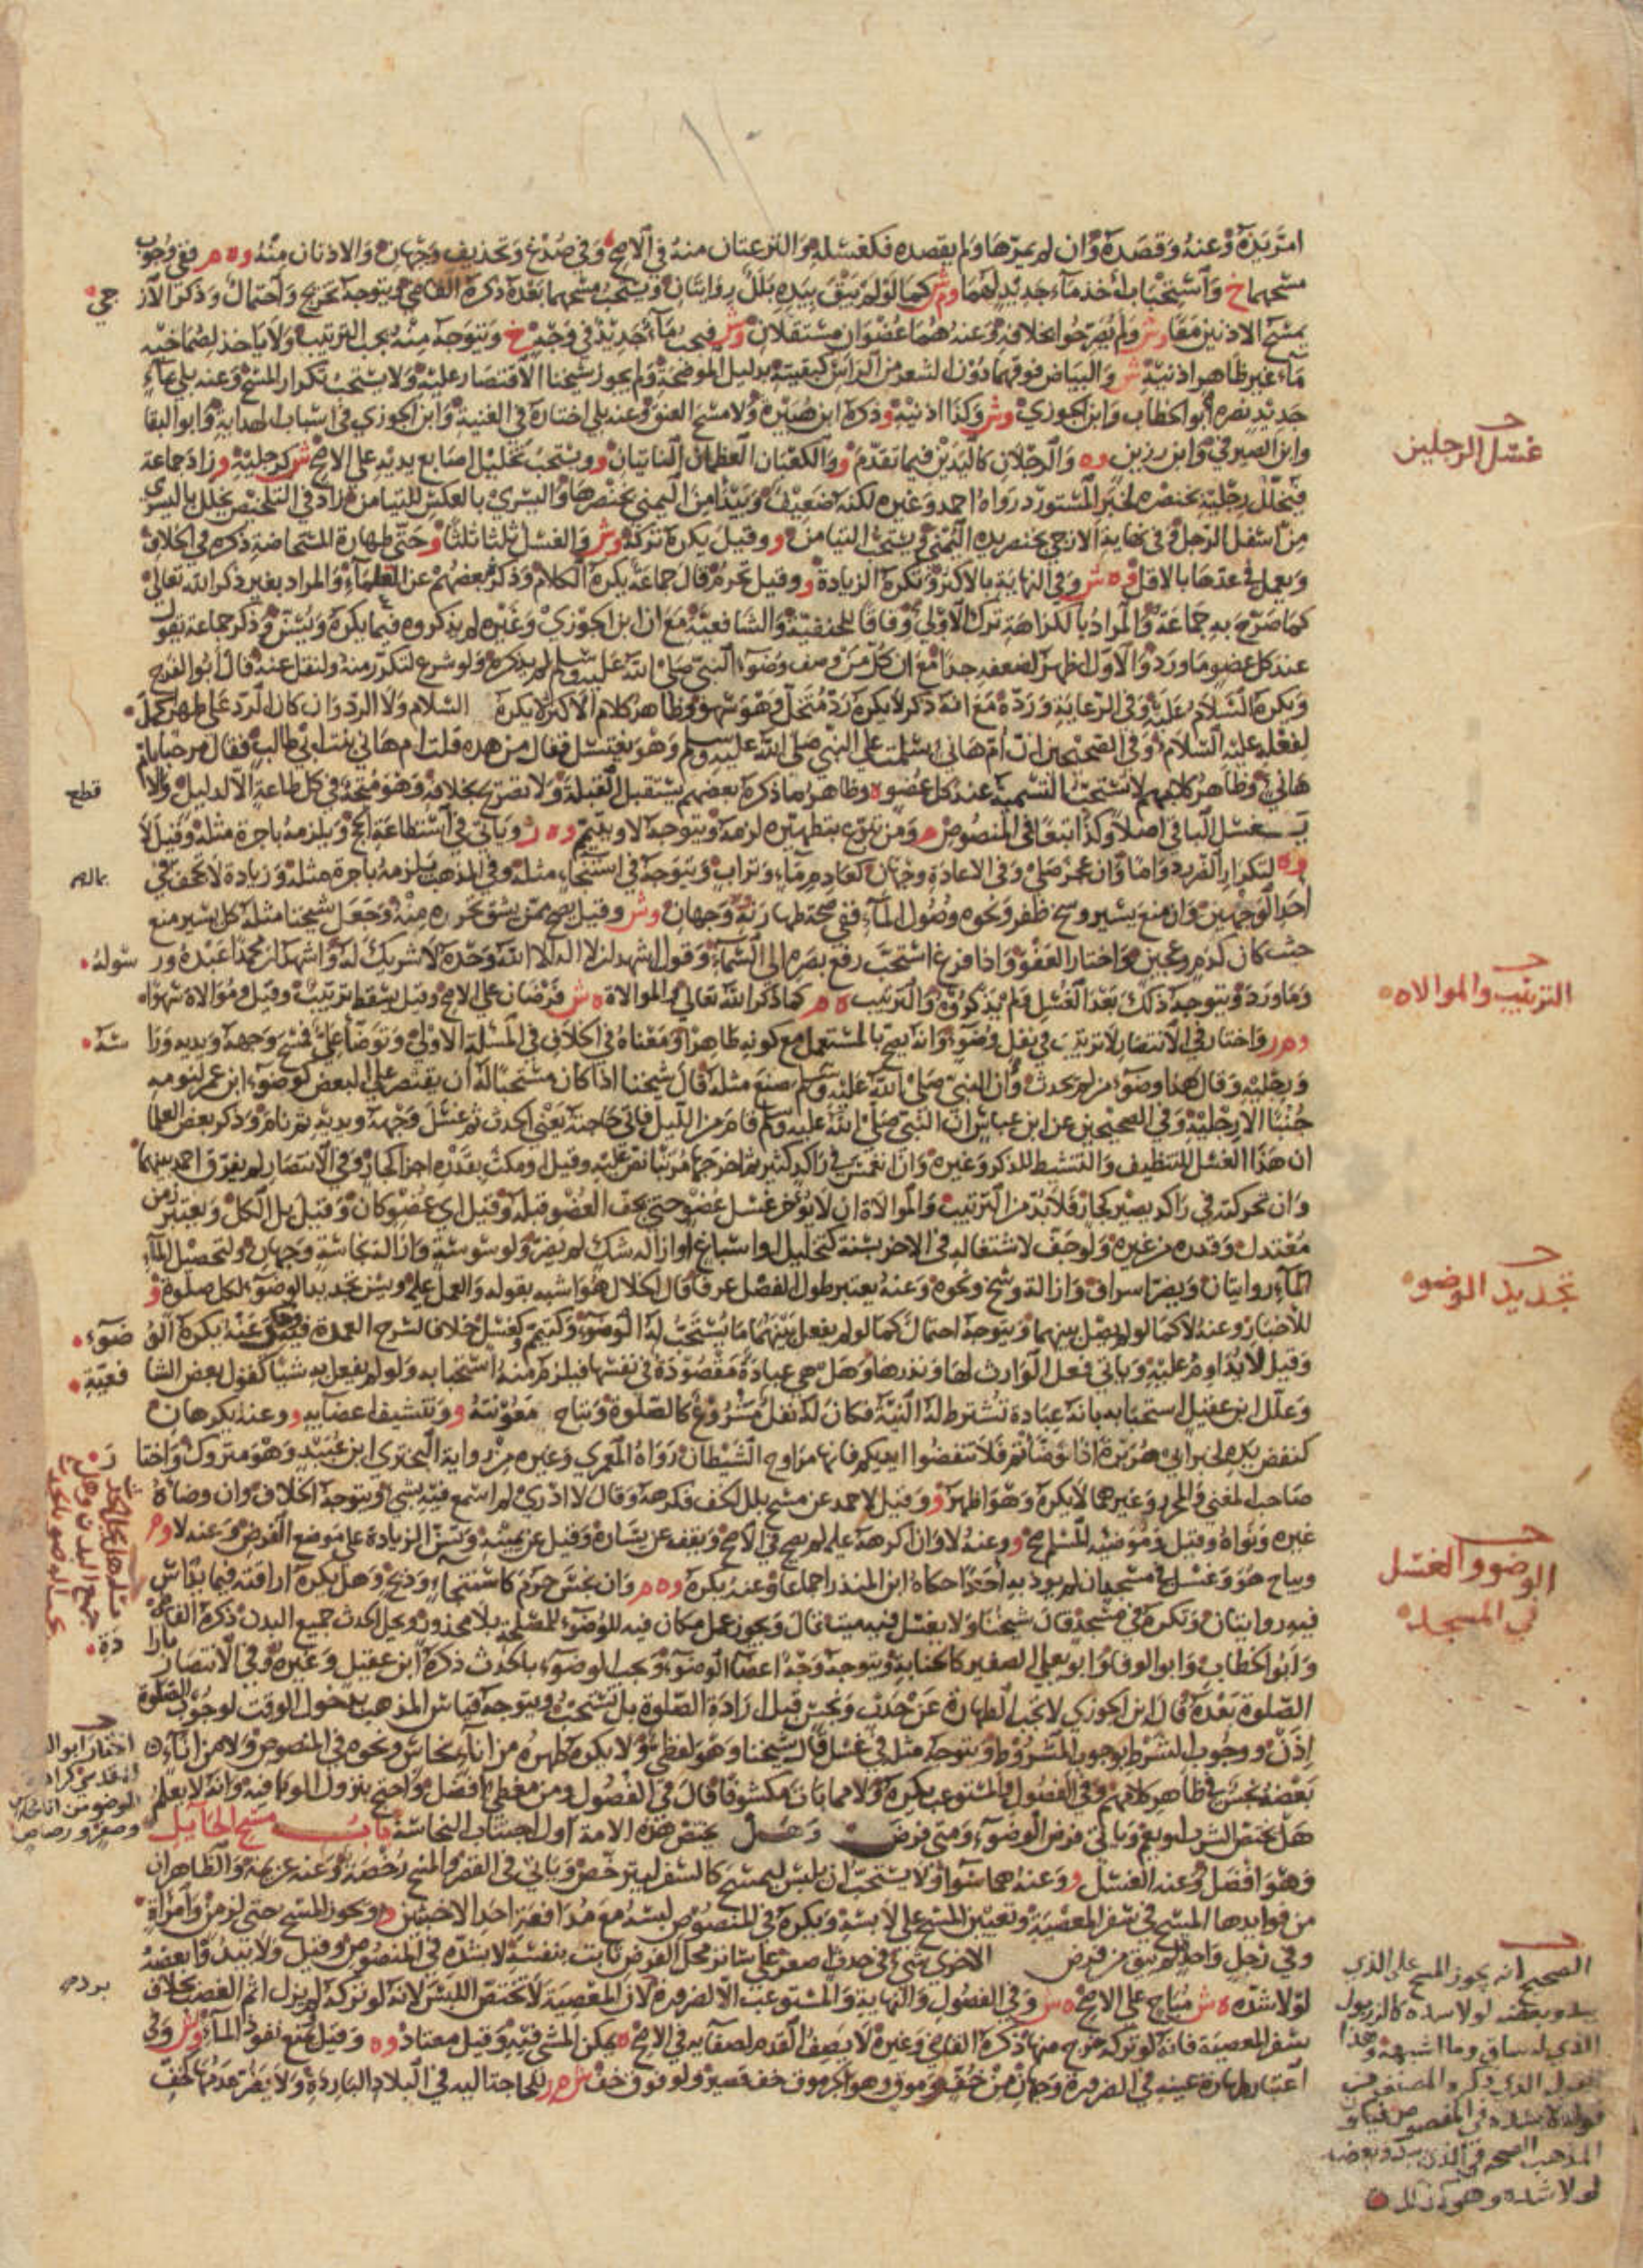 امر يده وعنه وقصده وان لم يمرها ولم يقصده فكغسله والنزعتان منه في الاصح وفي صدغ وتحذيف وجهان والاذنان منه وه م ففي وجوب
مسحهما خ واستحباب اخذ ماء جديد لهما وم ش كما لو لم يبق بيده بلل روايتان ويستحب مسحهما بعده ذكره القاضي ويتوجه تخريج واحتمال وذكر الازجي
يمسح الاذنين معا وش ولم يصرحوا بخلافه وعنه هما عضوان مستقلان وش فيجب ماء جديد في وجه خ ويتوجه منه يجب الترتيب ولا ياخذ لصماخيه
ماء غير ظاهر اذنيه ش والبياض فوقهما دون الشعر من الراس كبقيته بدليل الموضحة ولم يجوز شيخنا الاقتصار عليه ولا يستحب تكرار المسح وعنه بلى بماء
جديد نصره ابو الخطاب وابن الجوزي وش وكذا اذنيه وذكره ابن هبيرة ولا مسح العنق وعنه بلى اختاره في الغنية وابن الجوزي في اسباب الهداية وابو البقا
وابن الصيرفي وابن رزين وه والرجلان كاليدين فيما تقدم و والكعبان العظمان الناتيان و ويستحب تخليل اصابع يديه على الاصح ش كرجليه و زاد جماعة
فيخلل رجليه بخنصره لخبر المستورد رواه احمد وغيره لكنه ضعيف ويبدا من اليمنى بخنصرها واليسرى بالعكس للتيامن زاد في التلخيص يخلل باليسرى
من اسفل الرجل وفي نهاية الازجي بخنصر يده اليمنى ويستحب التيامن و وقيل يكره تركه وش والغسل ثلثا ثلثا و حتى طهارة المستحاضة ذكره في الخلاف
ويعمل في عددها بالاقل وه ش وفي النهاية بالاكثر وتكره الزيادة و وقيل تحرم قال جماعة يكره الكلام وذكره بعضهم عن العلماء والمراد بغير ذكر الله تعالى
كما صرح به جماعة والمراد بالكراهة ترك الاولى وفاقا للحنفية والشافعية مع ان ابن الجوزي وغيره لم يذكروه فيما يكره ويسن وذكر جماعة يقول
عند كل عضو ما ورد والاول اظهر لضعفه جدا مع ان كل من وصف وضوء النبي صلى الله عليه وسلم لم يذكره ولو شرع لتكرر منه ولنقل عنه قال ابو الفرج
ويكره السلام عليه وفي الرعاية ورده مع انه ذكر لا يكره رد متخل وهو سهو وظاهر كلام الاكثر لا يكره السلام ولا الرد وان كان الرد على طهر كمل
لفعله عليه السلام وفي الصحيحين ان ام هاني سلمت على النبي صلى الله عليه وسلم وهو يغتسل فقال من هذه قلت ام هاني بنت ابي طالب فقال مرحبا بام
هاني وظاهر كلامهم لا تستحب التسمية عند كل عضو ه وظاهر ما ذكره بعضهم يستقبل القبلة ولا تصريح بخلافه وهو متجه في كل طاعة الا لدليل والا قطع
غسل الباقي اصلا وكذا تبعا في المنصوص م ومن تبرع بتطهيره لزمه ويتوجه لا ويتيمم وه ر وياتي في استطاعة الحج ويلزمه باجرة مثله وقيل لا
وه لتكرار الفريد واما وان عجز صلى وفي الاعادة وجهان كعادم ماء وتراب ويتوجه في استنجاء مثله وفي المذهب يلزمه باجرة مثله وزيادة لا تجحف في
بماله
احد الوجهين وان منع يسير وسخ ظفر ونحوه وصول الماء ففي صحة طهارته وجهان وش وقيل يصح ممن يشق تحرزه منه وجعل شيخنا مثله كل يسير منع
حيث كان كدم وعجين واختار العفو واذا فرغ استحب رفع بصره الى السماء وقول اشهد ان لا اله الا الله وحده لا شريك له واشهد ان محمدا عبده ورسوله
وما ورد ويتوجه ذلك بعد الغسل ولم يذكروه والترتيب ه م كما ذكر الله تعالى والموالاة ه ش فرضان على الاصح وقيل يسقط ترتيب وقيل وموالاة سهوا
وم ر واختار في الانتصار لا ترتيب في نفل وضوء وانه يصح بالمستعمل مع كونه طاهرا ومعناه في الخلاف في المسئلة الاولى وتوضا علي فمسح وجهه ويديه وراسه
ورجليه وقال هذا وضوء من لم يحدث وان النبي صلى الله عليه وسلم صنع مثله قال شيخنا اذا كان مستحبا له ان يقتصر على البعض كوضوء ابن عمر لنومه
جنبا الا رجليه وفي الصحيحين عن ابن عباس ان النبي صلى الله عليه وسلم قام من الليل فاتى حاجته يعني الحدث ثم غسل وجهه ويديه ثم نام وذكر بعض العلما
ان هذا الغسل للتنظيف والتنشيط للذكر وغيره وان انغمس في راكد كثير ثم اخرجها مرتبا نص عليه وقيل او مكث بقدره اجزا كجار وفي الانتصار لم يفرق احمد بينهما
وان تحركته في راكد يصير كجار فلا بد من الترتيب والموالاة ان لا يؤخر غسل عضو حتى يجف العضو قبله وقيل اي عضو كان وقيل بل الكل ويعتبر زمن
معتدل وقدره من غيره ولو جف لاشتغاله في الاخر بسنة كتخليل او اسباغ او ازالة شك لم يضر ولوسوسة وازالة نجاسة وجهان ولتحصيل الماء
الماء روايتان ويضر اسراف وازالة وسخ ونحوه وعنه يعتبر طول الفصل عرفا قال الخلال هو اشبه بقوله والعمل عليه ويسن تجديد الوضوء لكل صلوة و
للاخبار وعنه لا كما لو لم يصل بينهما ويتوجه احتمال كما لو لم يفعل بينهما ما يستحب له الوضوء وكتيمم وكغسل خلافا لشرح العمدة فيهما وعنه يكره الوضوء
وقيل لا يداوم عليه وياتي فعل الوارث لها ونذرها وهل هي عبادة مقصودة في نفسها فيلزم منه استحبابه ولو لم يفعل به شيا كقول بعض الشافعية
وعلل ابن عقيل استحبابه بانه عبادة تشترط له النية فكان له نفل مشروع كالصلوة وتباح معونته و وتنشيف اعضايه و وعنه يكرهان
كنفض يده لخبر ابي هريرة اذا توضاتم فلا تنفضوا ايديكم فانها مراوح الشيطان رواه المعمري وغيره من رواية البختري ابن عبيد وهو متروك واختار
صاحب المغني والمحرر وغيرهما لا يكره وهو اظهر و وقيل لاحمد عن مسح بلل الخف فكرهه وقال لا ادري لم اسمع فيه بشي ويتوجه الخلاف وان وضاه
غيره ونواه وقيل وموضيه المسلم صح و وعنه لا وان اكرهه عليه لم يصح في الاصح ويقف عن يساره وقيل عن يمينه وتسن الزيادة على موضع الفرض وعنه لا وم
ويباح هو وغسل في مسجد ان لم يوذ به احدا حكاه ابن المنذر اجماعا وعنه يكره وه م وان نجس حرم كاستنجاء وريح وهل يكره اراقته فيما يداس
فيه روايتان وتكره في مسجد قال شيخنا ولا يغسل فيه ميت قال ويجوز عمل مكان فيه للوضوء للمصلحة بلا محذور ويحل الحدث جميع البدن ذكره القاضي
وابو الخطاب وابو الوفا وابو يعلى الصغير كالجنابة ويتوجه وجه اعضا الوضوء ويجب الوضوء بالحدث ذكره ابن عقيل وغيره وفي الانتصار بارادة
الصلوة بعده قال ابن الجوزي لا تجب الطهارة عن حدث ونجس قبل ارادة الصلوة بل تستحب ويتوجه قياس المذهب بدخول الوقت لوجوب الصلوة
اذن ووجوب الشرط بوجوب المشروط ويتوجه مثله في غسل قال شيخنا وهو لفظي ولا يكره طهره من اناء نحاس ونحوه في المنصوص ولا من اناء
بعضه نجس في ظاهر كلامهم وفي الفصول والمستوعب يكره ولا مما بات مكشوفا قال في الفصول ومن مغطى افضل واحتج بنزول الوبا فيه وانه لا يعلم
هل يختص الشرب او يعم وياتي فرض الوضوء ومتى فرض وهل يختص هذه الامة اول اجتناب النجاسة باب مسح الحائل
وهو افضل وعنه الغسل و وعنه هما سواء ولا يستحب ان يلبس ليمسح كالسفر ليترخص وياتي في القصر والمسح رخصة وعنه عزيمة والظاهر ان
من فوايدها المسح في سفر المعصية وتعيين المسح على لابسه ويكره في المنصوص لبسه مع مدافعة احد الاخبثين و ويجوز المسح حتى لزمن وامراة
وفي رجل واحدة لم يبق من فرض الاخرى شيء في حدث اصغر على ساتر محل الفرض ثابت بنفسه لا بشده في المنصوص وقيل ولا يبدو بعضه
لولا شده ه ش مباح على الاصح ه ش وفي الفصول والنهاية والمستوعب الا لضرورة لان المعصية لا تختص اللبس لانه لو تركه لم يزل اثم الغصب بخلاف
سفر المعصية فانه لو تركه خرج منها ذكره القاضي وغيره لا يصف القدم لصفايه في الاصح ه يمكن المشي فيه وقيل معتاد وه وقيل يمنع نفوذ الماء وش وفي
اعتبار طهارة عينه في الضرورة وجهان من خف وموق وهو الجرموق خف قصير ولو فوق خف ش م ر للحاجة اليه في البلاد الباردة ولا يضر عدمها كخف
غسل الرجلين
الترتيب والموالاه
تجديد الوضوء
الوضوء والغسل
في المسجد
الصحيح انه يجوز المسح على الذي
يبدو بعضه لولا شده كالزربول
الذي له ساق وما اشبهه وهذا
القول الذي ذكره المصنف من
قوله لا بشده في المنصوص
المذهب الصحة في الذي يبدو بعضه
لولا شده وهو كذلك